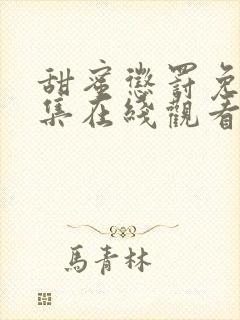 甜蜜懲罰免
集在綫觀看
馬青林